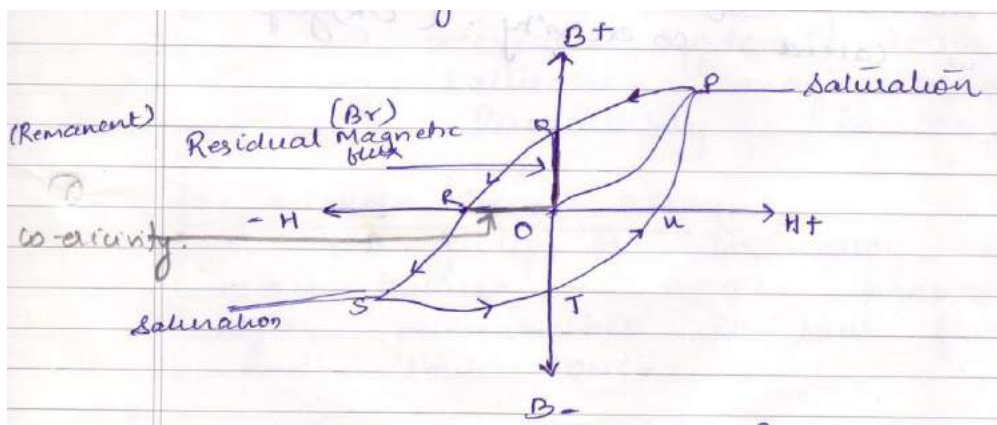 B+
P
Saturation
(Remanent)
(Br)
Residual Magnetic
flux
Q
R
- H
O
u
H+
co-ericivity.
S
T
Saturation
B-